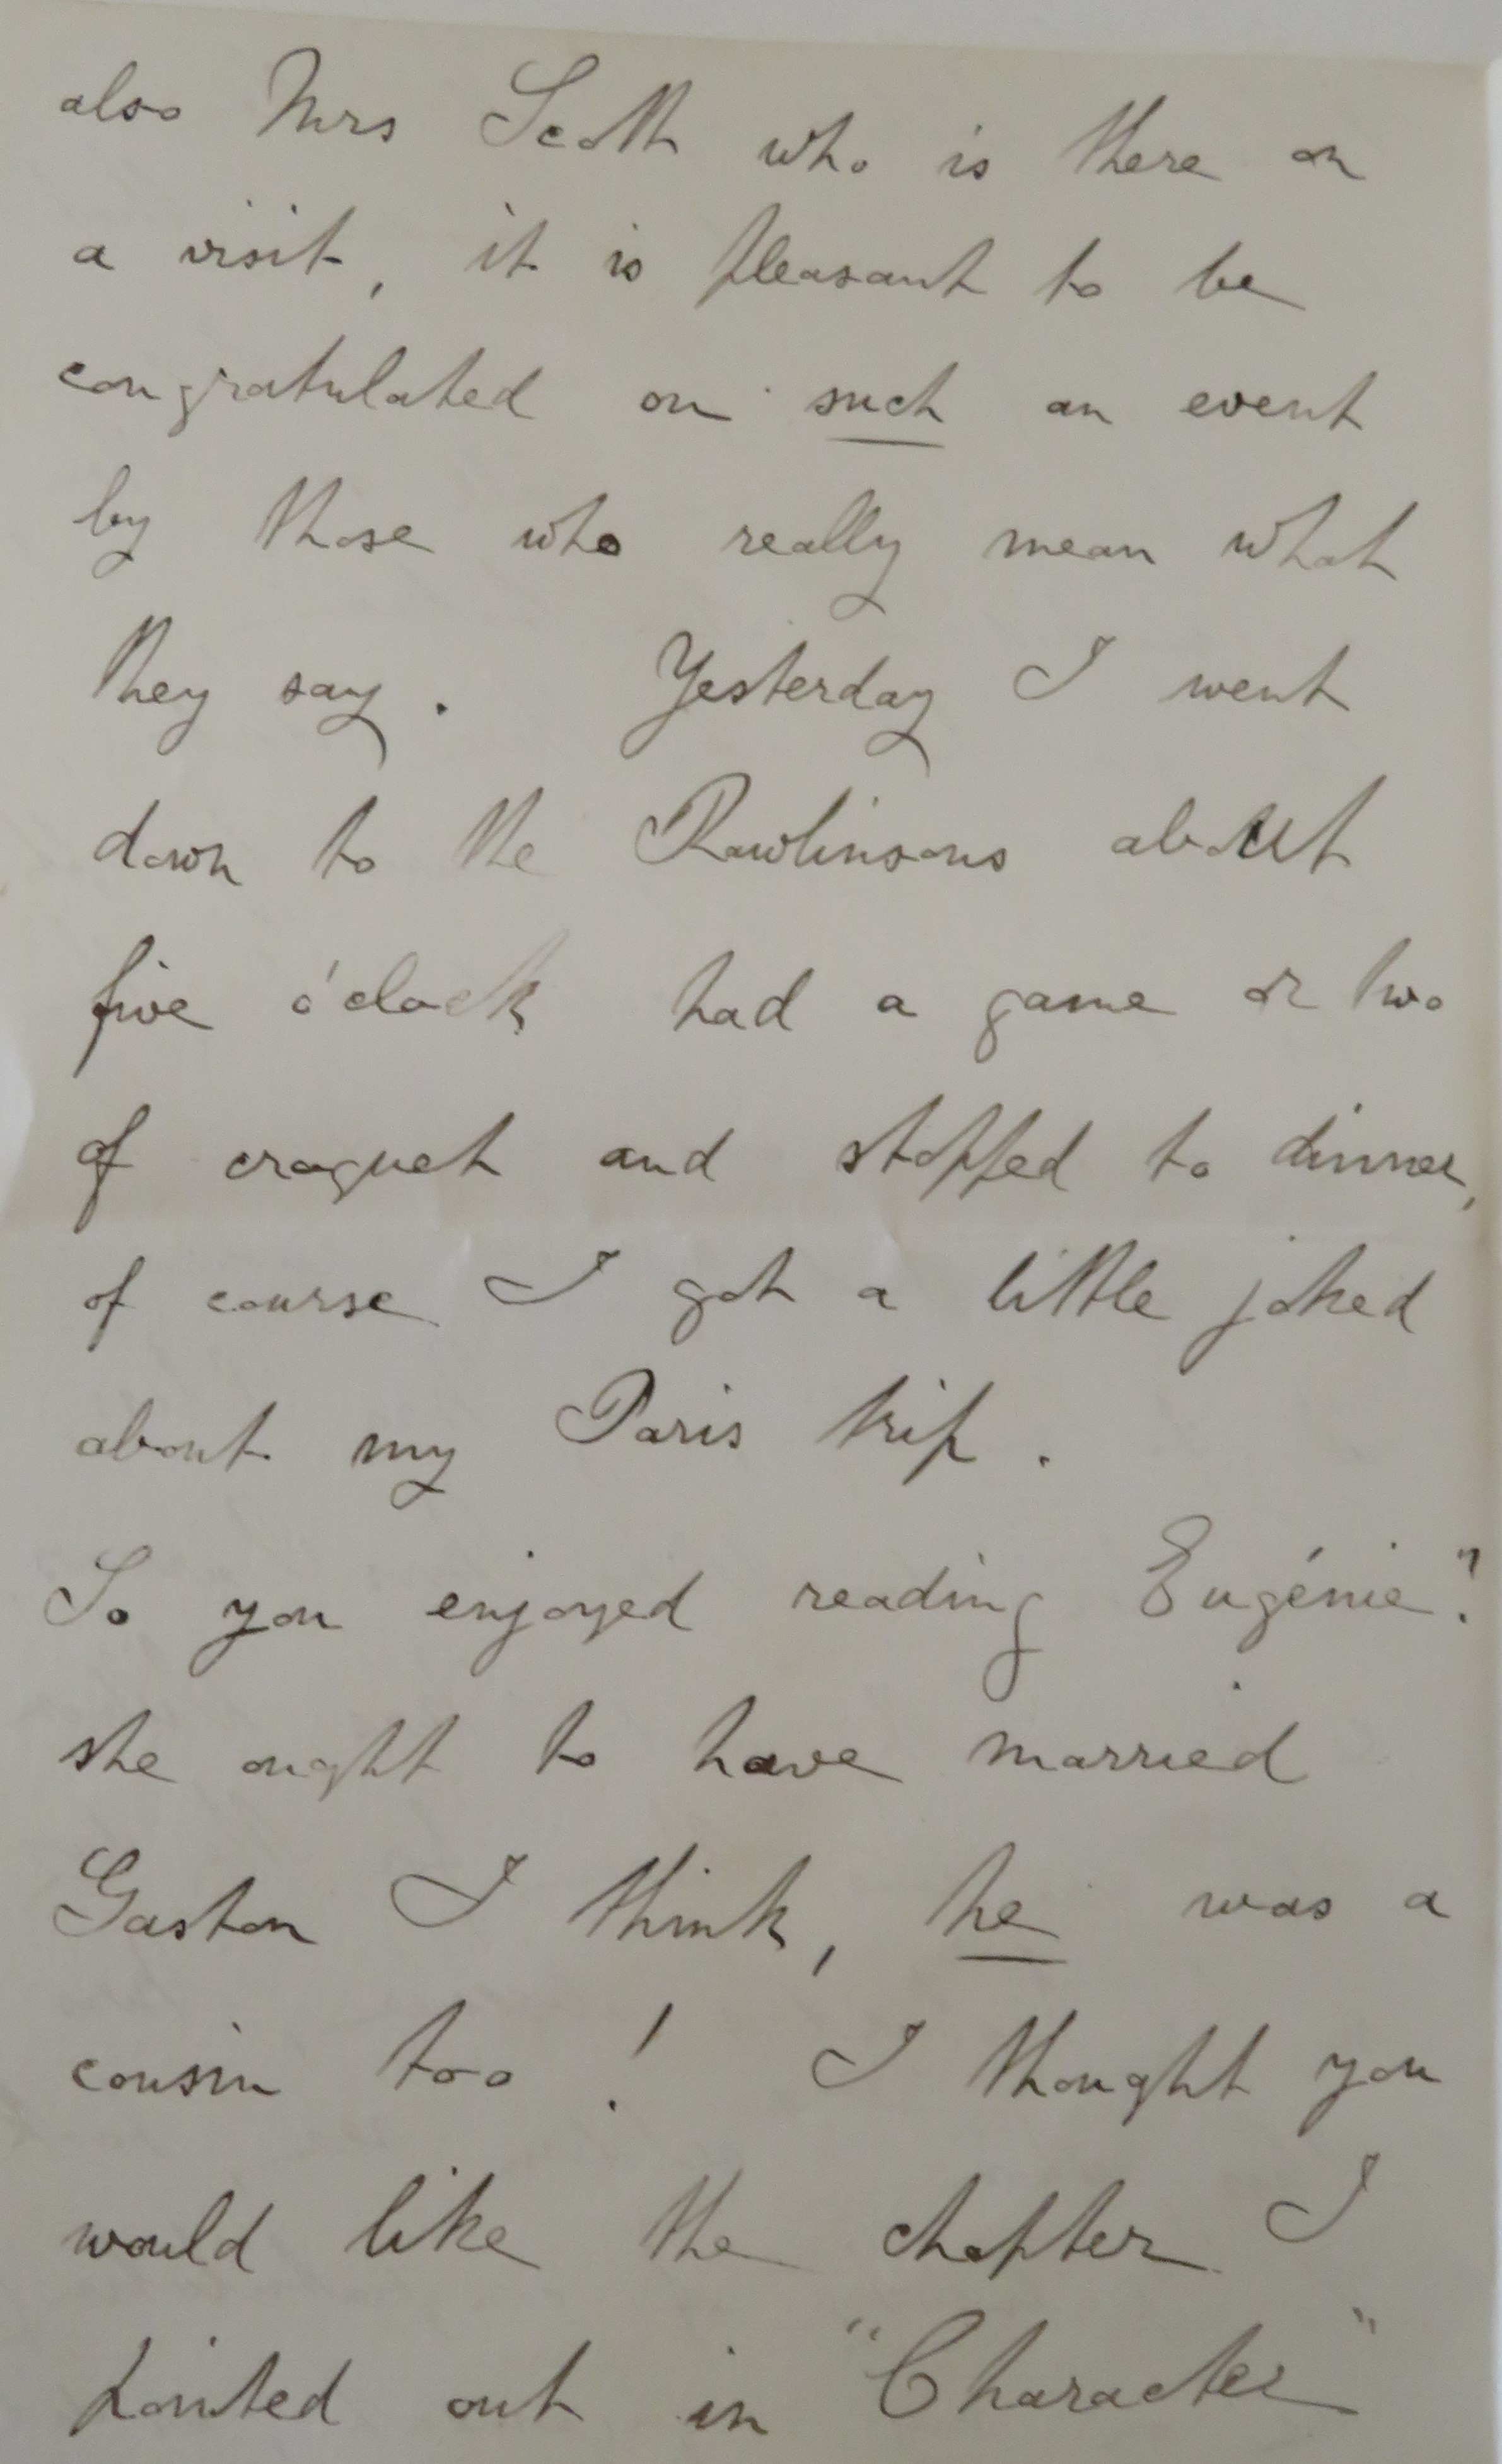 also Mrs Scott who is there on
a visit, it is pleasant to be
congratulated on such an event
by those who really mean what
they say. Yesterday I went
down to the Rawlinsons about
five o'clock had a game or two
of croquet and stopped to dinner,
of course I got a little joked
about my Paris trip.
So you enjoyed reading Eugénie?
she ought to have married
Gaston I think, he was a
cousin too! I thought you
would like the chapter I
pointed out in "Character"